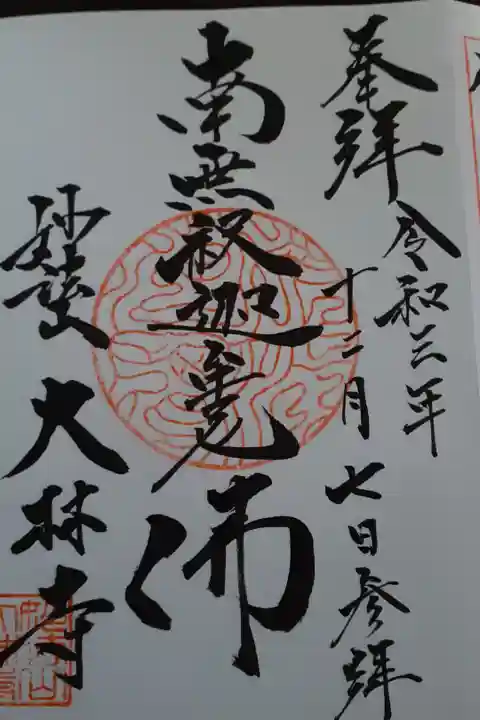 奉拜
令和三年
十二月七日参拜
南無釈迦牟尼佛
大林寺